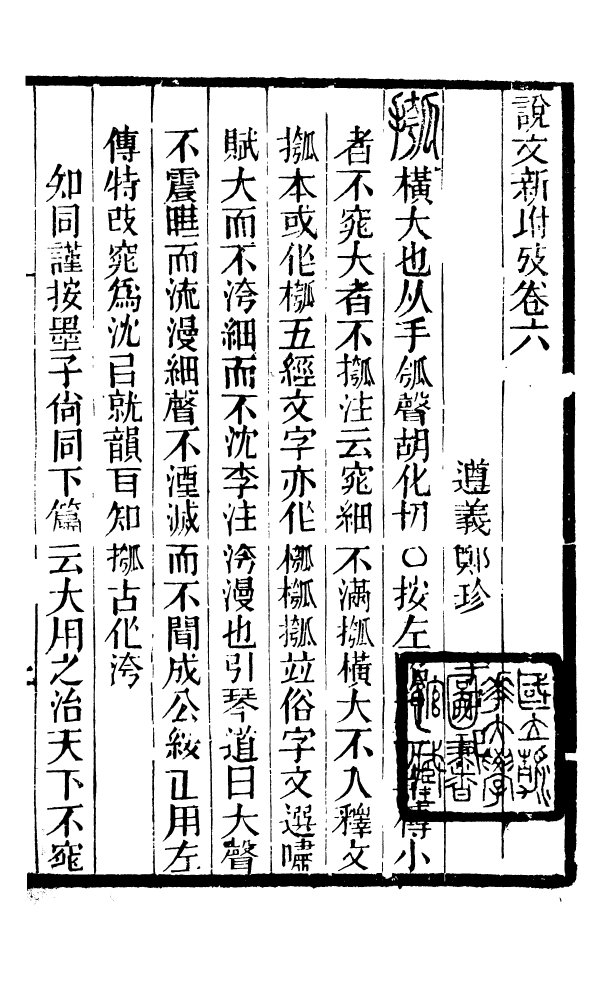 說文新坿攷卷六
遵義鄭珍
摦橫大也从手瓠聲胡化切〇按左傳小
者不窕大者不摦注云窕細不滿摦橫大不入釋文
摦本或作槬五經文字亦作槬摦竝俗字文選嘯
賦大而不洿細而不沈李注洿漫也引琴道曰大聲
不震譁而流漫細聲不湮滅而不聞成公綏正用左
傳特改窕爲沈㠯就韻知摦古作洿
知同謹按墨子尙同下篇云大用之治天下不窕
國立清華大學圖書館藏